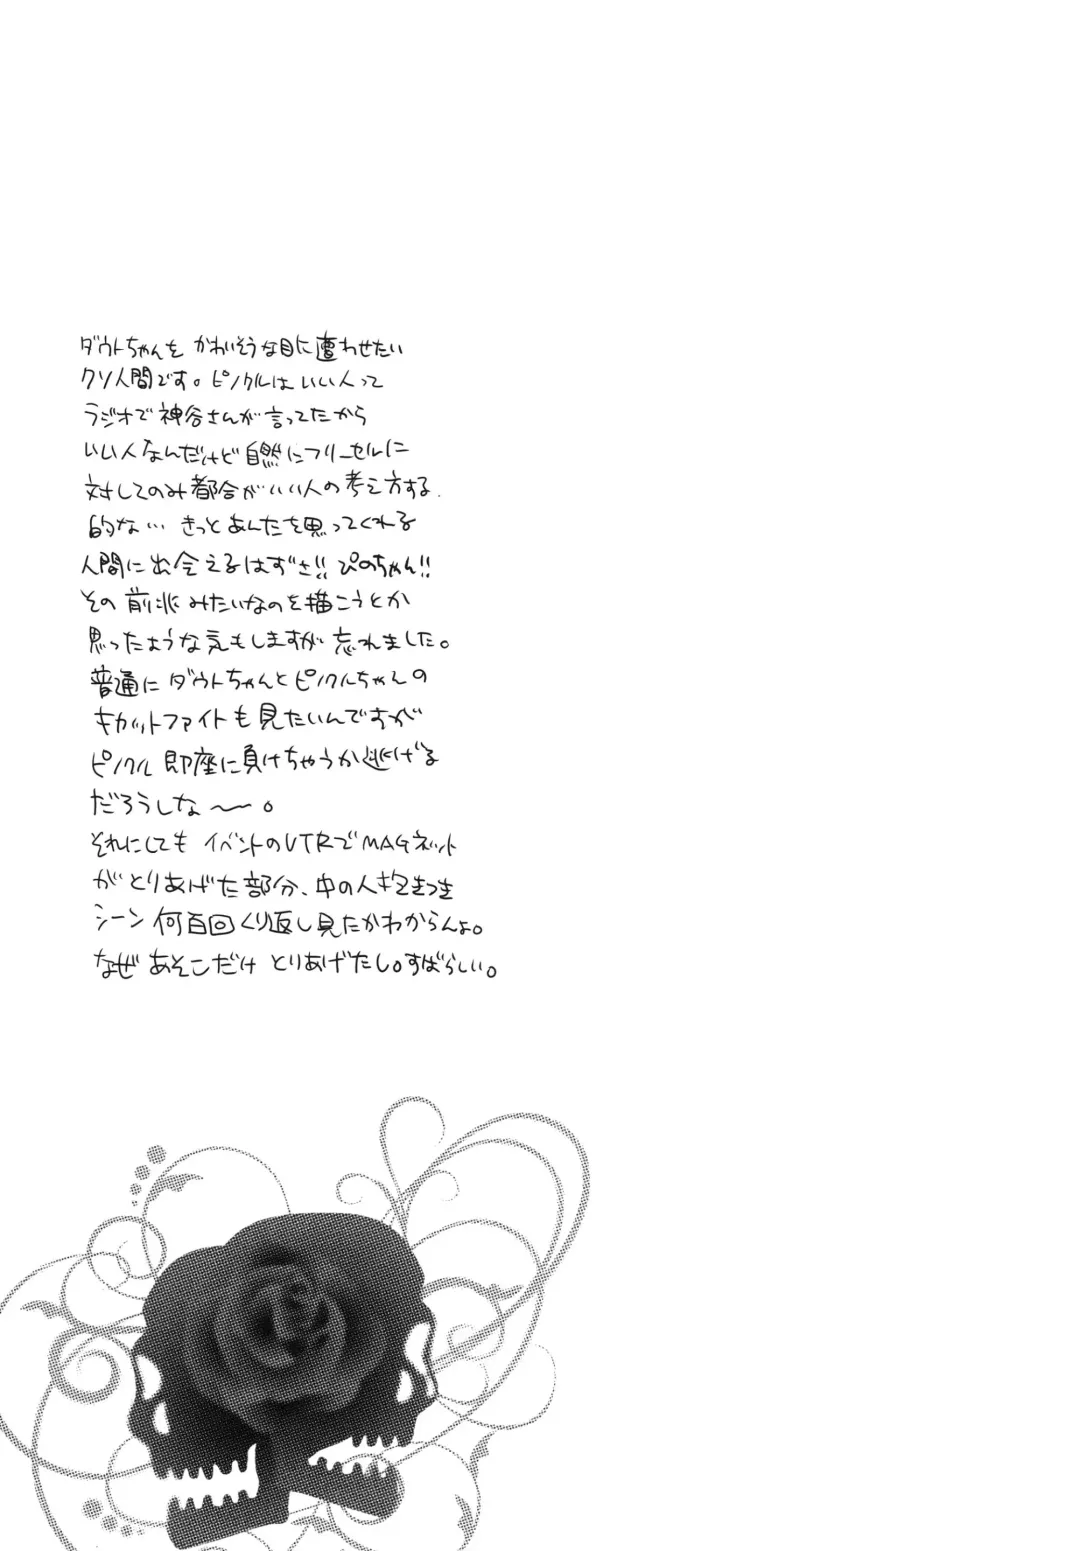 ダウトちゃんを かわいそうな目に遭わせたい
クソ人間です。ピノクルはいい人って
ラジオで神谷さんが言ってたから
いい人なんだけど自然にフリーセルに
対してのみ都合がいい人の考え方する
的な… きっとあんたを思ってくれる
人間に出会えるはずさ!! ぴのちゃん!!
その前兆みたいなのを描こうとか
思ったような気もしますが忘れました。
普通にダウトちゃんとピノクルちゃんの
キャットファイトも見たいんですが
ピノクル即座に負けちゃうか逃げる
だろうしな〜。
それにしても イベントのVTRでMAGネット
がとりあげた部分、中の人
シーン何百回くり返し見たかわからんよ。
なぜ あそこだけ とりあげたし。すばらしい。